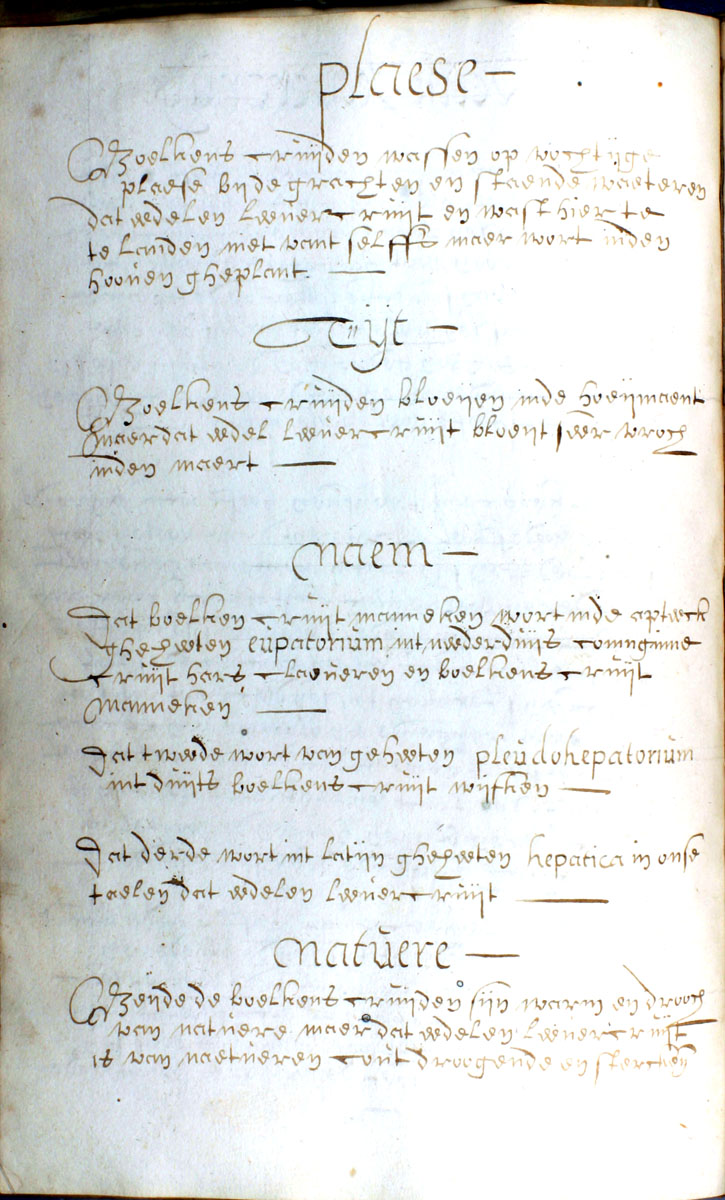 plaese —
Boelkens cruijden wassen op vochtijge
plaese bij de grachten en staende waeteren
dat edelen leevercruijt en wast hier te
te landen niet vant selffs maer wort inden
hooven gheplant. —
Tijt —
Boelkens cruijden bloeijen inde hoeijmaent
maer dat edel leevercruijt bloeijt seer vroch
inden maert —
Naem —
Dat boelken cruijt manneken wort inde apteeck
gheheeten eupatorium int neederduijts coninginne
cruijt hars claeveren en boelkens cruijt
manneken —
Dat tweede wort van geheeten pseudohepatorium
int duijts boelkens cruijt wijfken —
Dat derde wort int latijn gheheeten hepatica in onse
taelen dat edelen leevercruijt —
Natuere —
Beijde de boelkens cruijden sijn warm en drooch
van natuere maer dat edelen leevercruijt
is van naetueren cout droogende en